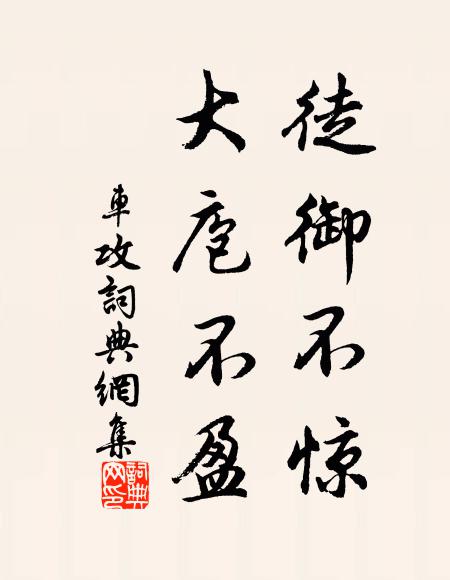 徒御不惊
大庖不盈
車攻詞典網集
詞典网印